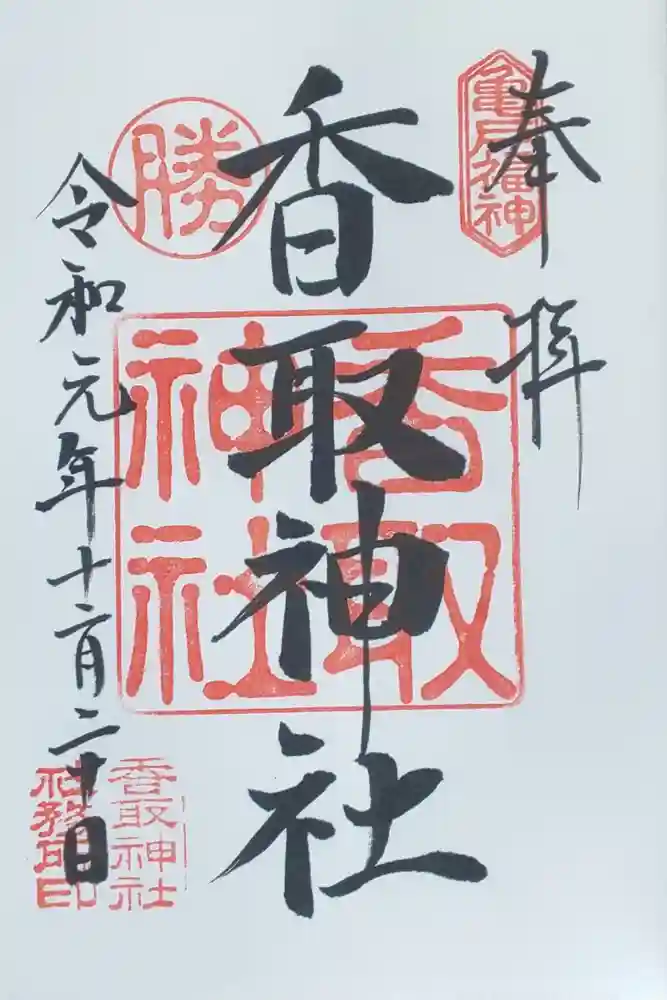 奉拝
亀戸福神
香取神社
勝
香取
神社
令和元年十二月二十日
香取神社
社務所印